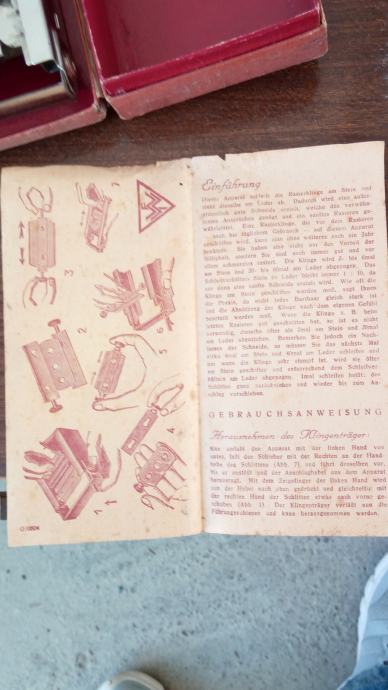 Einführung
Dieser Apparat schleift die Rasierklinge am Stein und
zieht dieselbe am Leder ab. Dadurch wird eine außer-
ordentlich gute Schneide erzielt, welche den verwöhn-
testen Ansprüchen genügt und ein sanftes Rasieren ge-
währleistet. Eine Rasierklinge, die vor dem Rasieren
— auch bei täglichem Gebrauch — auf diesem Apparat
geschliffen wird, kann man ohne weiteres auch ein Jahr
benützen. Sie haben also nicht nur den Vorteil der
Billigkeit, sondern Sie sind auch immer gut und vor
allem schonend rasiert. Die Klinge wird 2- bis 4mal
am Stein und 20- bis 40mal am Leder abgezogen. Das
Schleifverhältnis Stein zu Leder bleibt immer 1 : 10, da
nur dann eine sanfte Schneide erzielt wird. Wie oft die
Klinge am Stein geschliffen werden muß, sagt Ihnen
die Praxis, da nicht jedes Barthaar gleich stark ist
und die Abnützung der Klinge nach dem eigenen Gefühl
beurteilt werden muß. Wenn die Klinge z. B. beim
letzten Rasieren gut geschnitten hat, so ist es nicht
notwendig, dieselbe öfter als 2mal am Stein und 20mal
am Leder abzuziehen. Bemerken Sie jedoch ein Nach-
lassen der Schneide, so müssen Sie das nächste Mal
zirka 4mal am Stein und 40mal am Leder schleifen und
um wenn die Klinge sehr stumpf ist, wird sie öfter
am Stein geschliffen und entsprechend dem Schleifver-
hältnis am Leder abgezogen. 1mal schleifen heißt: den
Schlitten ganz zurückziehen und wieder bis zum An-
schlag vorschieben.
GEBRAUCHSANWEISUNG
Herausnehmen des Klingenträgers:
Man umfaßt den Apparat mit der linken Hand von
unten, faßt den Schieber mit der Rechten an der Hand-
habe des Schlittens (Abb. 7) und führt denselben vor.
Bis er anstößt und der Anschlaghebel aus dem Apparat
herausragt. Mit dem Zeigefinger der linken Hand wird
nun der Hebel nach oben gedrückt und gleichzeitig mit
der rechten Hand der Schlitten etwas nach vorne ge-
schoben (Abb. 1). Der Klingenträger verläßt nun die
Führungsschienen und kann herausgenommen werden.
1
2
3
4
5
6
7